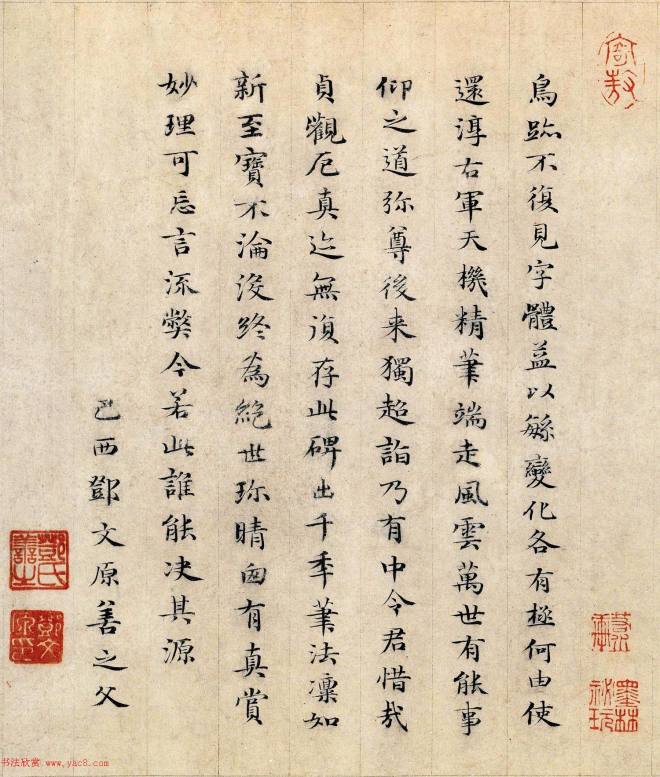 鳥跡不復見字體益以緐變化各有極何由使
還淳右軍天機精筆端走風雲萬世有能事
仰之道弥尊後来獨超詣乃有中令君惜哉
貞觀厄真迹無復存此碑出千秊筆法凛如
新至寶不淪没終為絕世珎晴囱有真賞
妙理可忘言流弊今若此誰能决其源
己酉鄧文原善之父
墨林祕玩
书法欣赏 www.yac8.com